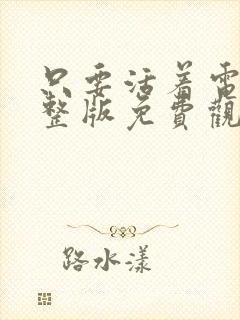 只要活着電
整版免費觀
路水漾